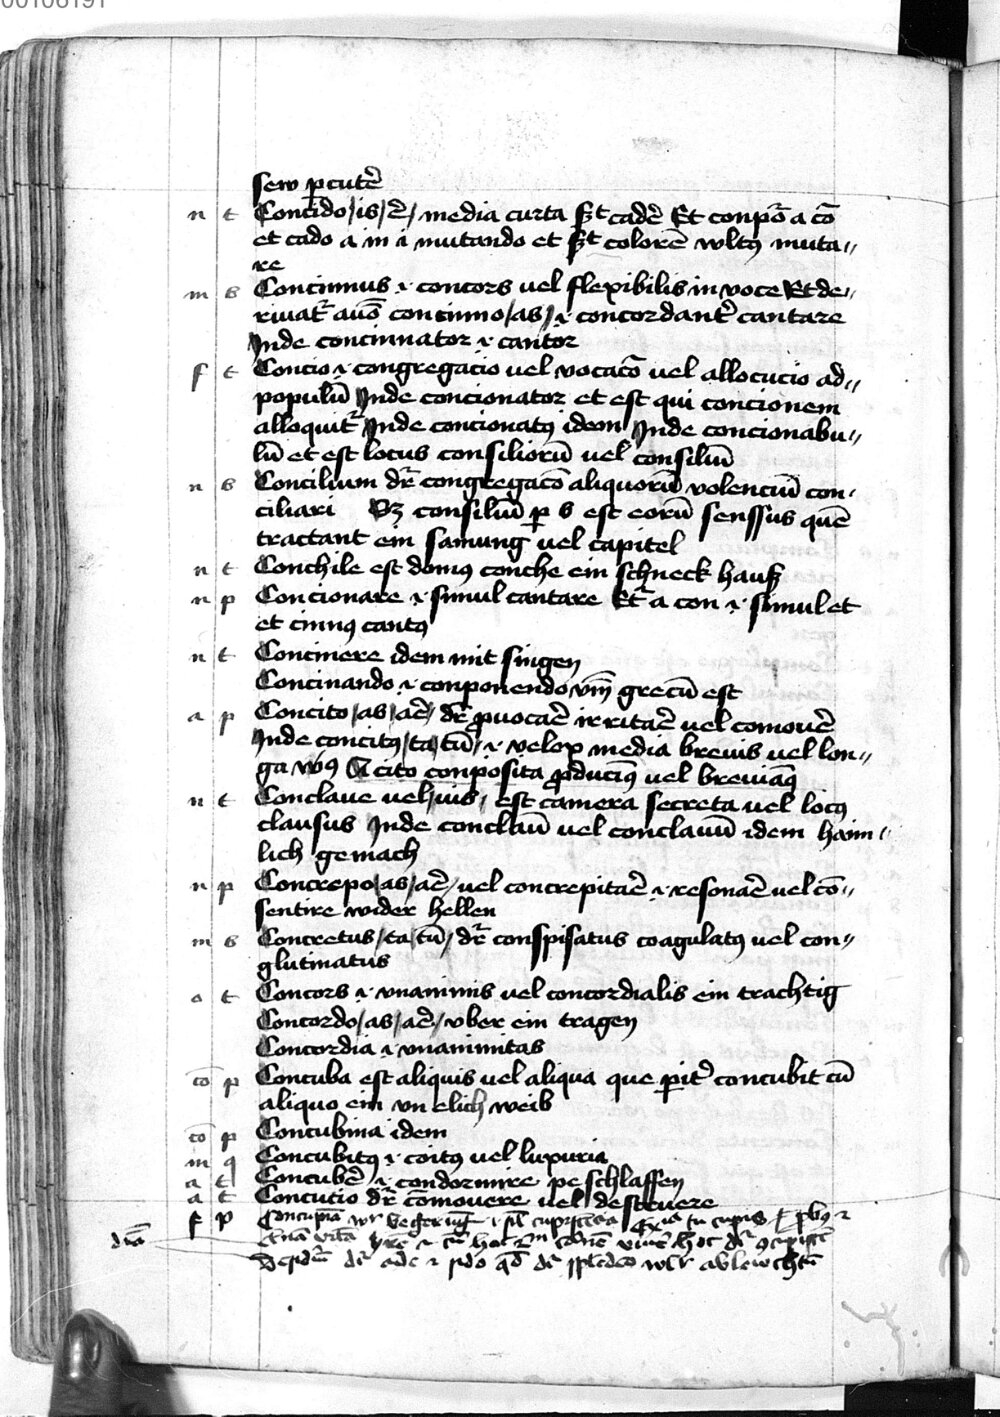 00106191
sew ꝑcutē
n t Concido /is/ē/ media curta s̄t cadē Et conpōr a cō
et cado a in i mutando et s̄t colorē wltꝯ muta〃
re
m b Concinnus ·i· concors vel flexibilis in voce Et de〃
riuat̄ auō concinno /as/ ·i· concordant̄ cantare
Inde concinnator ·i· cantor
f t Concio ·i· congregacio vel vocacō vel allocucio ad〃
populū Inde concionator et est qui concionem
alloquit̄ Inde concionatꝯ idem Inde concionabu〃
lū et est locus consiliorū vel consiliū
n b Concilium dr̄ congregacō aliquorū volenciū con〃
ciliari Sꝫ consiliū ꝑ s est eorū senssus quē
tractant ein samung vel capitel
n t Conchile est domꝯ conche ein schneck hauß
n p Concionare ·i· simul cantare Et̄ a con ·i· simul et
et cinnꝯ cantꝯ
n t Concinere idem mit singen
Concinando ·i· conponendo vm̄ grecū est
a p Concito /as/aē/ dr̄ ꝓuocaē irritaē vel comouē
Inde concitꝯ/ta/tū/ ·i· velox media breuis vel lon〃
ga vꝰs Acito conposita ꝓducimꝯ vel breuiamꝯ
n t Conclaue vel/uis/ est camera secreta vel locꝯ
clausus Inde conclauū vel conclauiū idem haim〃
lich gemach
n p Concrepo/as/aē/ vel concrepitaē ·i· resonaē vel cō〃
sentire wider hellen
m b Concretus/ta/tū/ dr̄ conspisatus coagulatꝯ vel con〃
glutinatus
o t Concors ·i· vnanimis vel concordialis ein trachtig
Concordo/as/aē/ vber ein tragen
Concordia ·i· vnanimitas
cō p Concuba est aliquis vel aliqua que ꝑit̄ concubit cū
aliquo ein vn elich weib
cō p Concubina idem
m q Concubitꝯ ·i· coitus vel luxuria
a t Concubē ·i· condormire pe schlaffen
a t Concutio dr̄ cōmouere vel destruere
f p